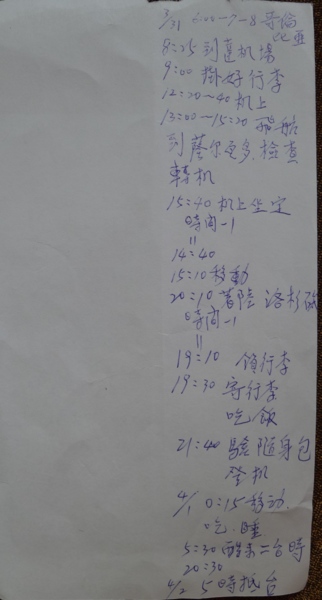 3/31 6:00-7-8 哥倫
比亞
8:25 到達机場
9:00 掛好行李
12:20~40 机上
13:00~15:20 飛航
到薩尔瓦多.檢查
轉机
15:40 机上坐定
時间-1
=
14:40
15:10 移動
20:10 着陸 洛杉磯
時间-1
=
19:10 領行李
19:30 寄行李
吃飯
21:40 驗隨身包
登机
4/1 0:15 移动.
吃.睡
5:30 醒来 二台時
20:30
4/2 5時抵台